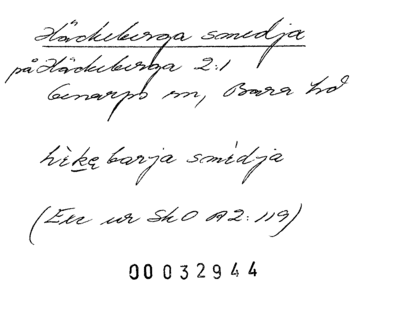 Häckeberga smedja
på Häckeberga 2:1
Genarps sn, Bara hd
hèkebarja smédja
(Exc ur SkO A2:119)
00032944